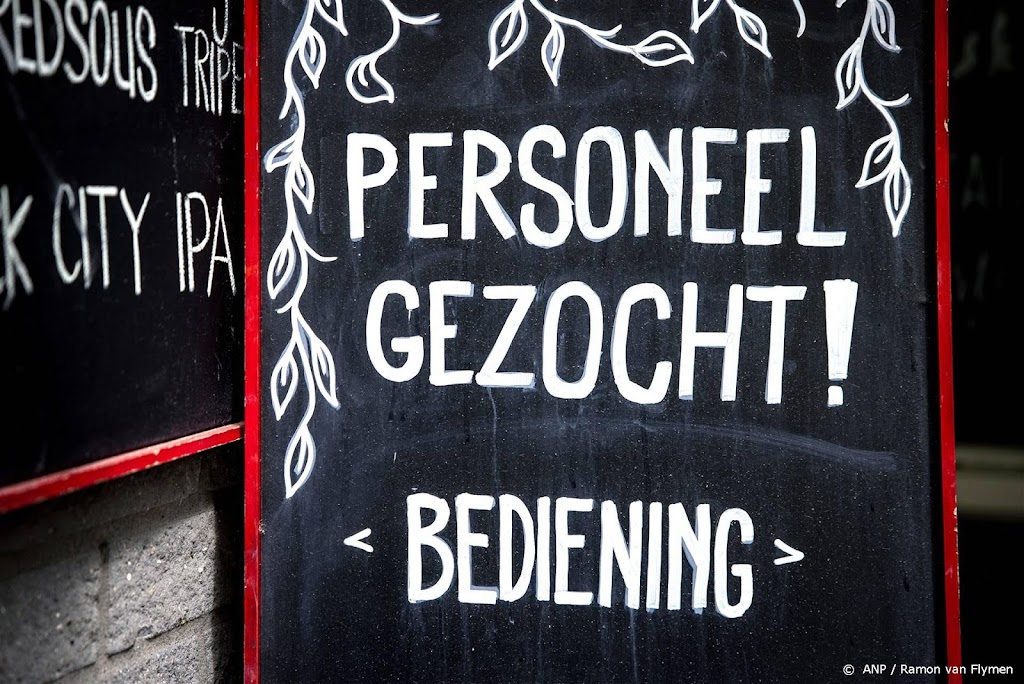 REDSOUS TRIPE
CITY IPA
PERSONEEL
GEZOCHT!
< BEDIENING >
© ANP / Ramon van Flymen